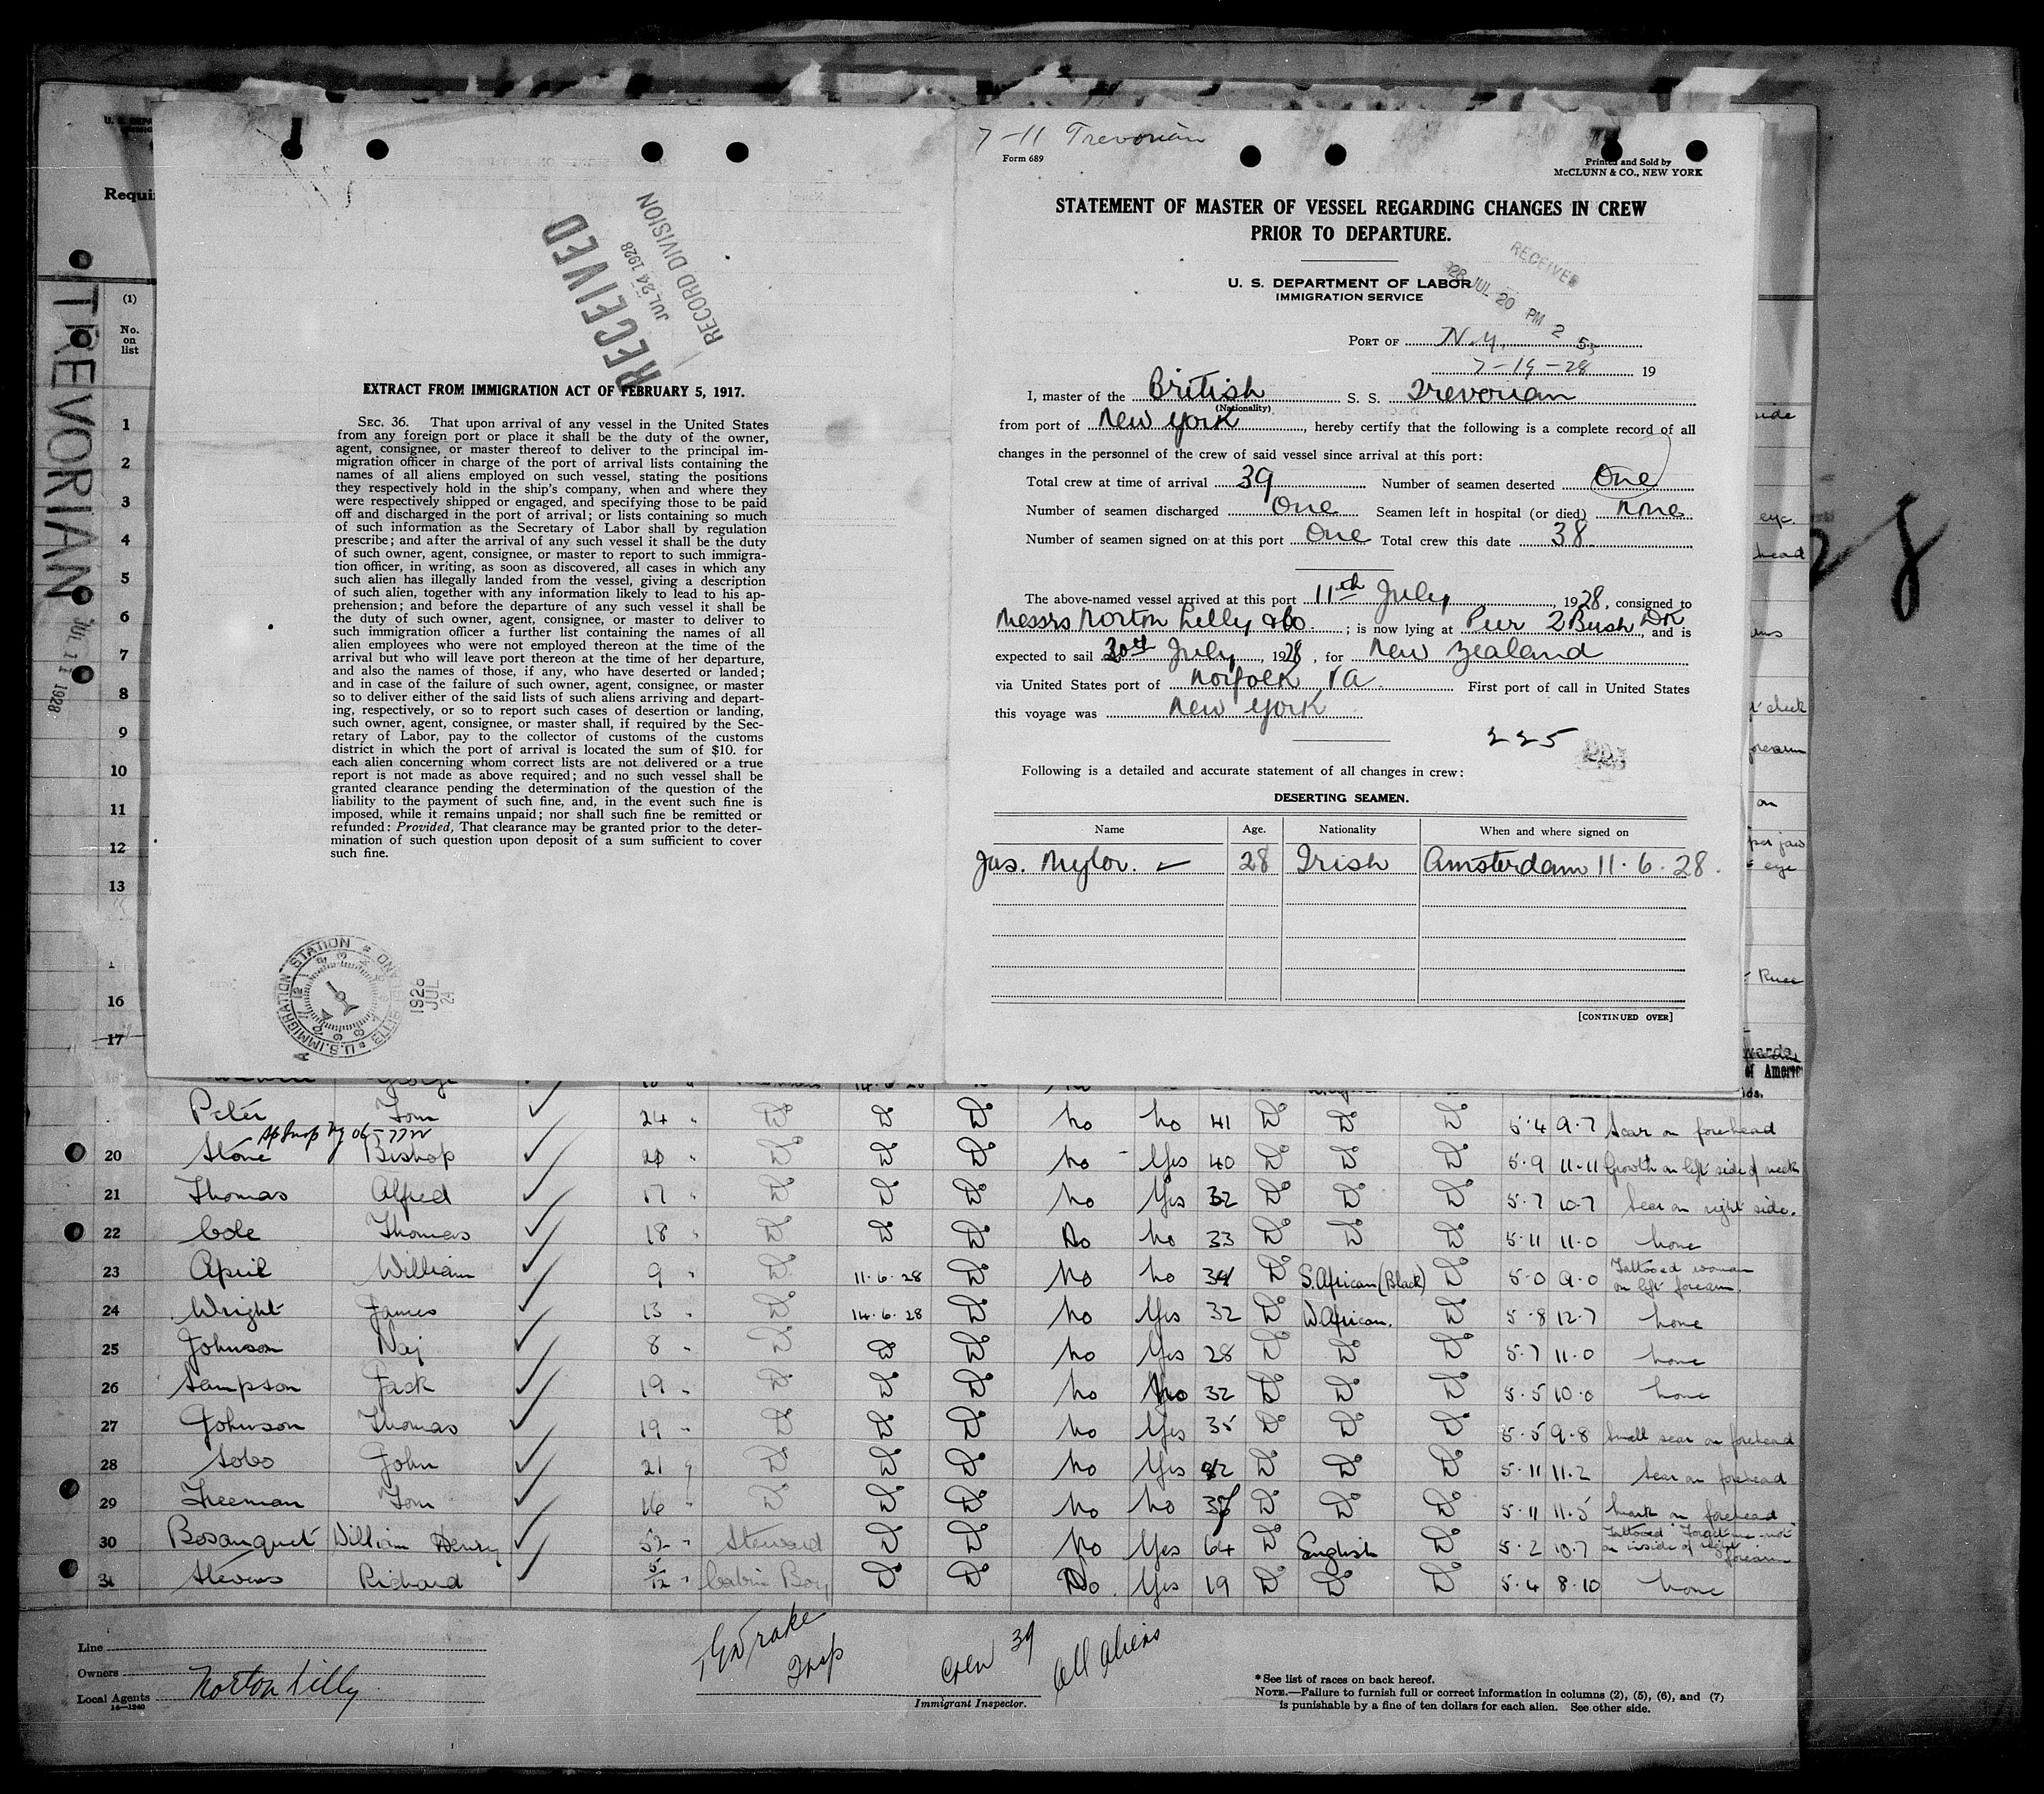 7-11 Trevorian
Form 689
Printed and Sold by
McCLUNN & CO., NEW YORK
STATEMENT OF MASTER OF VESSEL REGARDING CHANGES IN CREW
PRIOR TO DEPARTURE.
RECEIVED
1928 JUL 20 PM 2 55
U. S. DEPARTMENT OF LABOR
IMMIGRATION SERVICE
PORT OF N.Y.
7-19-28 19
I, master of the British S. S. Trevorian
(Nationality)
from port of New York, hereby certify that the following is a complete record of all
changes in the personnel of the crew of said vessel since arrival at this port:
Total crew at time of arrival 39 Number of seamen deserted One
Number of seamen discharged One Seamen left in hospital (or died) None
Number of seamen signed on at this port One Total crew this date 38.
The above-named vessel arrived at this port 11th July, 1928, consigned to
Messrs Norton Lilly & Co.; is now lying at Pier 2 Bush Dk, and is
expected to sail 20th July, 1928, for New Zealand
via United States port of Norfolk Va. First port of call in United States
this voyage was New York
225
Following is a detailed and accurate statement of all changes in crew:
DESERTING SEAMEN.
Name Age. Nationality When and where signed on
Jas. Nylor. 28 Irish Amsterdam 11.6.28.
[CONTINUED OVER]
RECEIVED
JUL 24 1928
RECORD DIVISION
EXTRACT FROM IMMIGRATION ACT OF FEBRUARY 5, 1917.
SEC. 36. That upon arrival of any vessel in the United States
from any foreign port or place it shall be the duty of the owner,
agent, consignee, or master thereof to deliver to the principal im-
migration officer in charge of the port of arrival lists containing the
names of all aliens employed on such vessel, stating the positions
they respectively hold in the ship's company, when and where they
were respectively shipped or engaged, and specifying those to be paid
off and discharged in the port of arrival; or lists containing so much
of such information as the Secretary of Labor shall by regulation
prescribe; and after the arrival of any such vessel it shall be the duty
of such owner, agent, consignee, or master to report to such immigra-
tion officer, in writing, as soon as discovered, all cases in which any
such alien has illegally landed from the vessel, giving a description
of such alien, together with any information likely to lead to his ap-
prehension; and before the departure of any such vessel it shall be
the duty of such owner, agent, consignee, or master to deliver to
such immigration officer a further list containing the names of all
alien employees who were not employed thereon at the time of the
arrival but who will leave port thereon at the time of her departure,
and also the names of those, if any, who have deserted or landed;
and in case of the failure of such owner, agent, consignee, or master
so to deliver either of the said lists of such aliens arriving and depart-
ing, respectively, or so to report such cases of desertion or landing,
such owner, agent, consignee, or master shall, if required by the Sec-
retary of Labor, pay to the collector of customs of the customs
district in which the port of arrival is located the sum of $10. for
each alien concerning whom correct lists are not delivered or a true
report is not made as above required; and no such vessel shall be
granted clearance pending the determination of the question of the
liability to the payment of such fine, and, in the event such fine is
imposed, while it remains unpaid; nor shall such fine be remitted or
refunded: Provided, That clearance may be granted prior to the deter-
mination of such question upon deposit of a sum sufficient to cover
such fine.
U.S. IMMIGRATION STATION
1928
JUL
24
TREVORIAN JUL 11 1928
(1)
No.
on
list
1
2
3
4
5
6
7
8
9
10
11
12
13
16
17
28
Peter Tom 24 " Do Do Do No No 41 Do Do Do 5.4 9.7 Scar on forehead
20 Stone Bishop " Do Do Do No Yes 40 Do Do Do 5.9 11.11 Growth on left side of neck
21 Thomas Alfred 17 " Do Do Do No Yes 32 Do Do Do 5.7 10.7 Scar on right side.
22 Cole Thomas 18 " Do Do Do No No 33 Do Do Do 5.11 11.0 None
23 April William 9 " Do 11.6.28 Do No No 34 Do S. African (Black) Do 5.0 9.0 Tattooed woman on left forearm.
24 Wright James 13 " Do 14.6.28 Do No Yes 32 Do W. African. Do 5.8 12.7 None
25 Johnson Naj 8 " Do Do Do No Yes 28 Do Do Do 5.7 11.0 None
26 Sampson Jack 19 " Do Do Do No No 32 Do Do Do 5.5 10.0 None
27 Johnson Thomas 19 " Do Do Do No Yes 35 Do Do Do 5.5 9.8 Small scar on forehead
28 Sobo John 21 " Do Do Do No Yes 42 Do Do Do 5.11 11.2 Scar on forehead
29 Freeman Tom 16 " Do Do Do No No 37 Do Do Do 5.11 11.5 Mark on forehead
30 Bosanquet William Henry 52 " Steward Do Do No Yes 64 Do English Do 5.2 10.7 Tattooed "Forget-me-not" on inside of right forearm
31 Stevens Richard 5/12 " Cabin Boy Do Do No. Yes 19 Do Do Do 5.4 8.10 None
Line
Owners
Local Agents Norton Lilly
14-1240
Drake
Insp
Crew 39
All Aliens
Immigrant Inspector.
* See list of races on back hereof.
NOTE.—Failure to furnish full or correct information in columns (2), (5), (6), and (7)
is punishable by a fine of ten dollars for each alien. See other side.